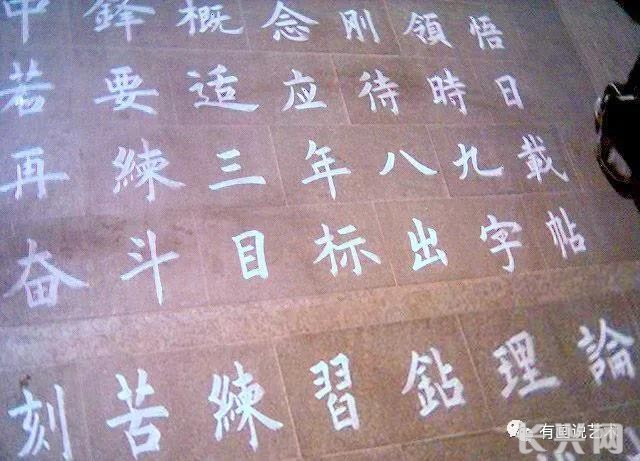 中鋒概念刚領悟
若要适应待時日
再練三年八九載
奋斗目标出字帖
刻苦練習鉆理論
有画说艺术
长兴网